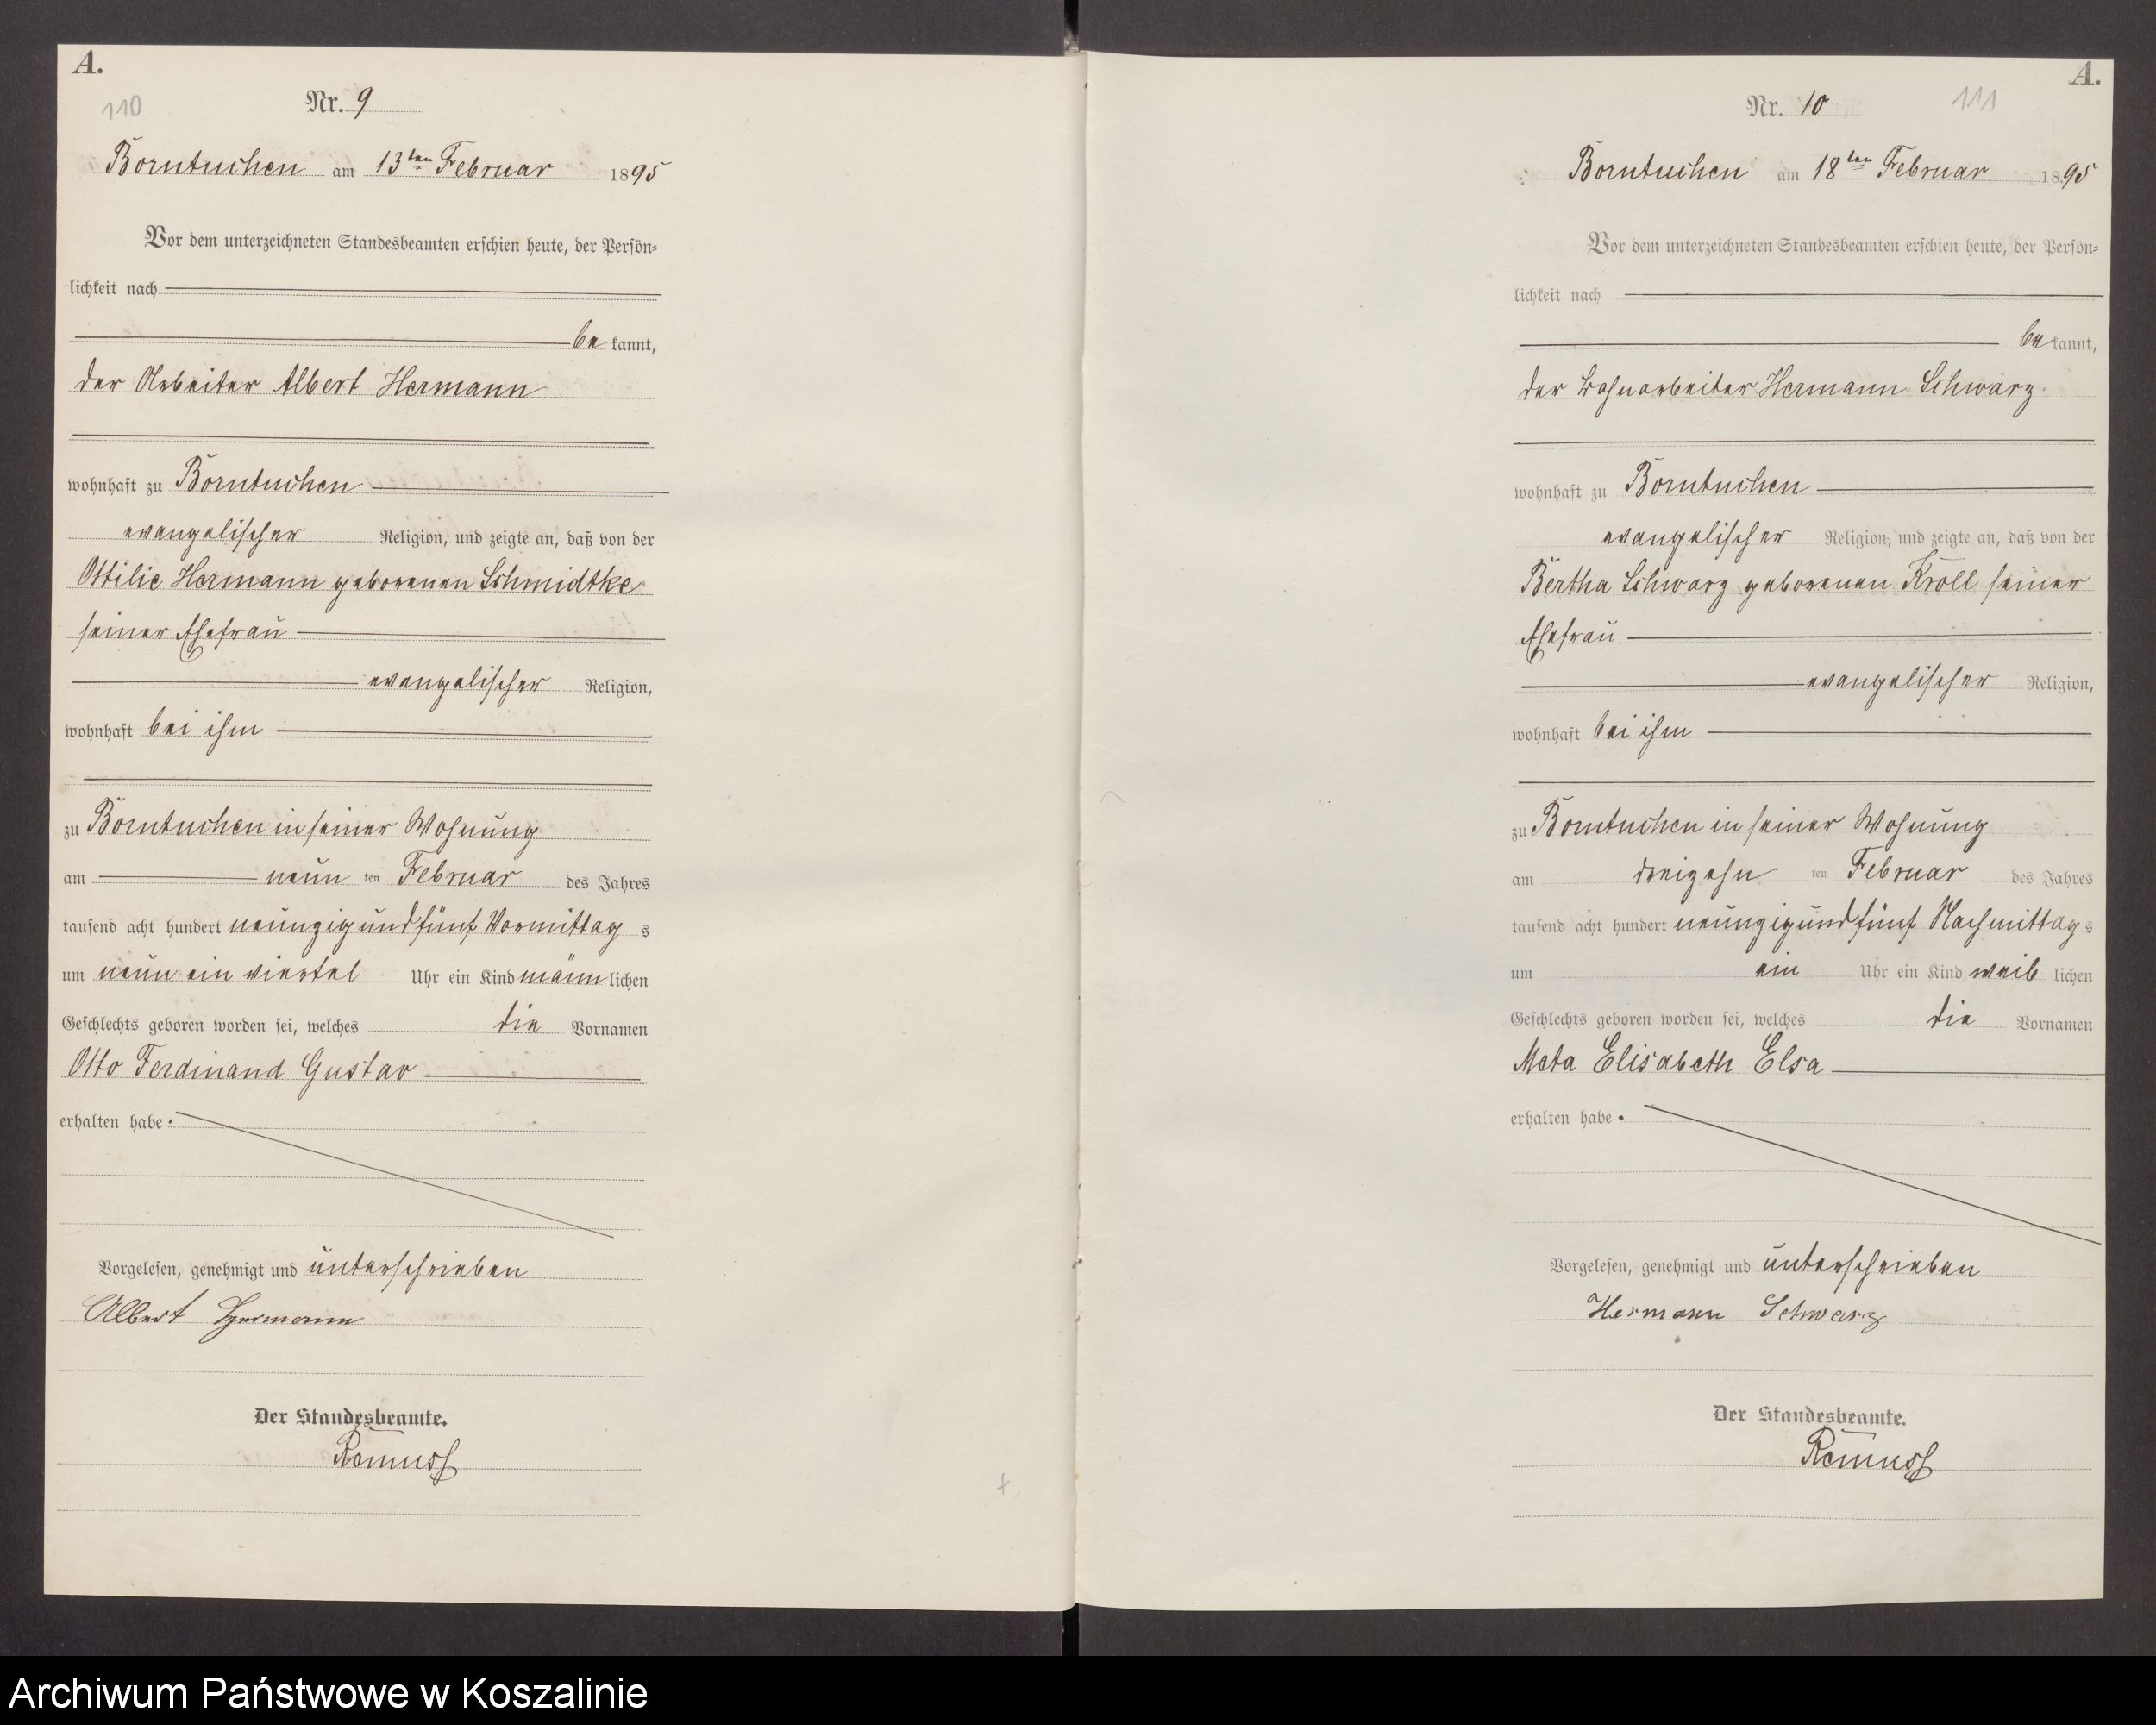 A.
110
Nr. 9
Borntuchen am 13ten Februar 1895
Vor dem unterzeichneten Standesbeamten erschien heute, der Persön-
lichkeit nach
be kannt,
der Arbeiter Albert Hermann
wohnhaft zu Borntuchen
evangelischer Religion, und zeigte an, daß von der
Ottilie Hermann geborenen Schmidtke
seiner Ehefrau
evangelischer Religion,
wohnhaft bei ihm
zu Borntuchen in seiner Wohnung
am neun ten Februar des Jahres
tausend acht hundert neunzig und fünf Vormittag s
um neun ein viertel Uhr ein Kind männ lichen
Geschlechts geboren worden sei, welches die Vornamen
Otto Ferdinand Gustav
erhalten habe.
Vorgelesen, genehmigt und unterschrieben
Albert Hermann
Der Standesbeamte.
Remuss
A.
111
Nr. 10
Borntuchen am 18ten Februar 1895
Vor dem unterzeichneten Standesbeamten erschien heute, der Persön-
lichkeit nach
be kannt,
der Bahnarbeiter Hermann Schwarz
wohnhaft zu Borntuchen
evangelischer Religion, und zeigte an, daß von der
Bertha Schwarz geborenen Kroll seiner
Ehefrau
evangelischer Religion,
wohnhaft bei ihm
zu Borntuchen in seiner Wohnung
am dreizehn ten Februar des Jahres
tausend acht hundert neunzig und fünf Nachmittag s
um ein Uhr ein Kind weib lichen
Geschlechts geboren worden sei, welches die Vornamen
Meta Elisabeth Elsa
erhalten habe.
Vorgelesen, genehmigt und unterschrieben
Hermann Schwarz
Der Standesbeamte.
Remuss
Archiwum Państwowe w Koszalinie